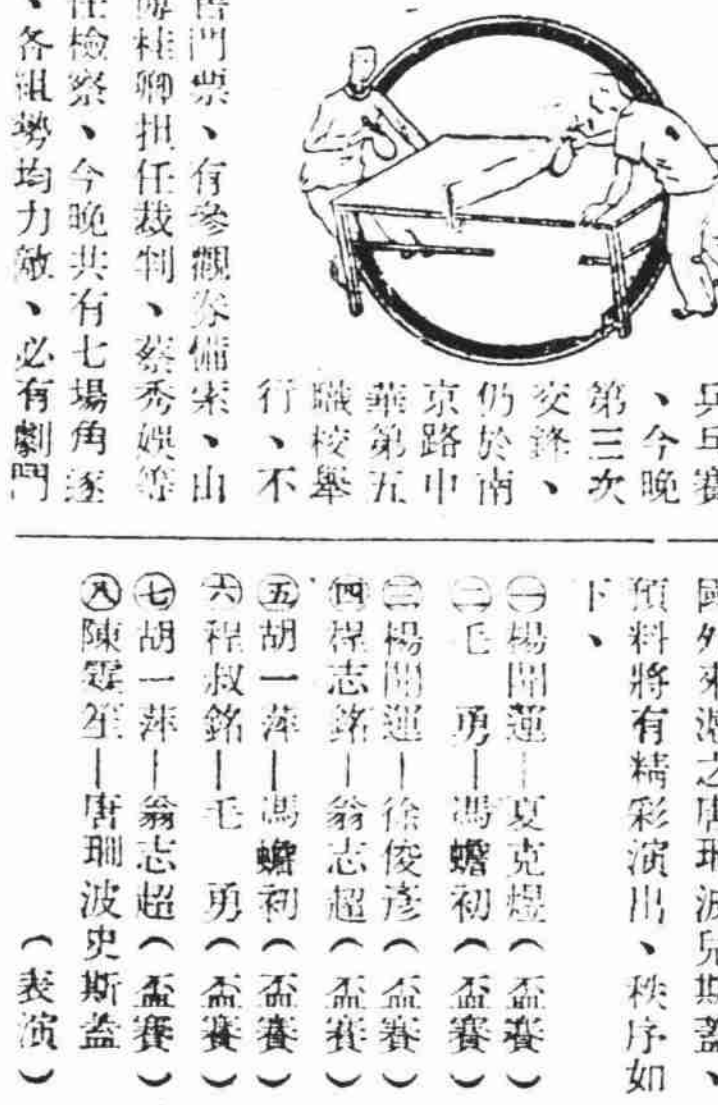 乒乓賽
、今晚
第三次
交鋒、
仍於南
京路中
華第五
職校舉
行、不
售門票、有參觀券備索、由
桂卿担任裁判、蔡秀娛等
任檢察、今晚共有七場角逐
、各組勢均力敵、必有劇鬥
國外來滬之唐珊波兒斯蓋、
預料將有精彩演出、秩序如
下、
㊀楊開運—夏克煜(盃賽)
㊁毛　勇—馮蟾初(盃賽)
㊂楊開運—徐俊彥(盃賽)
㊃程志銘—翁志超(盃賽)
㊄胡一萍—馮蟾初(盃賽)
㊅程叔銘—毛　勇(盃賽)
㊆胡一萍—翁志超(盃賽)
㊇陳霖笙—唐珊波史斯蓋
(表演)